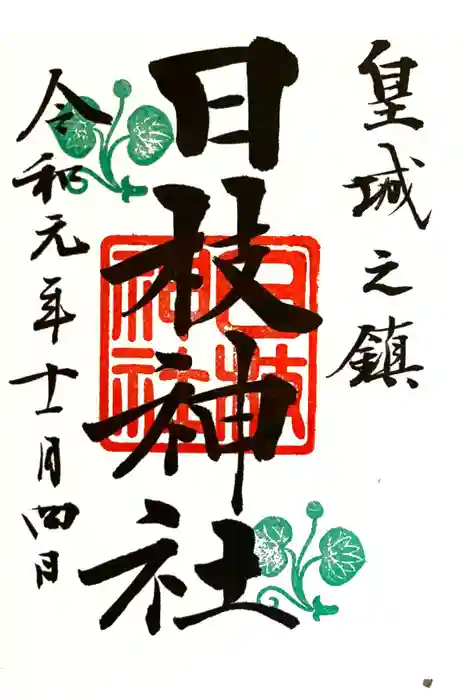 皇城之鎮
日枝神社
日枝神社
令和元年十一月四日